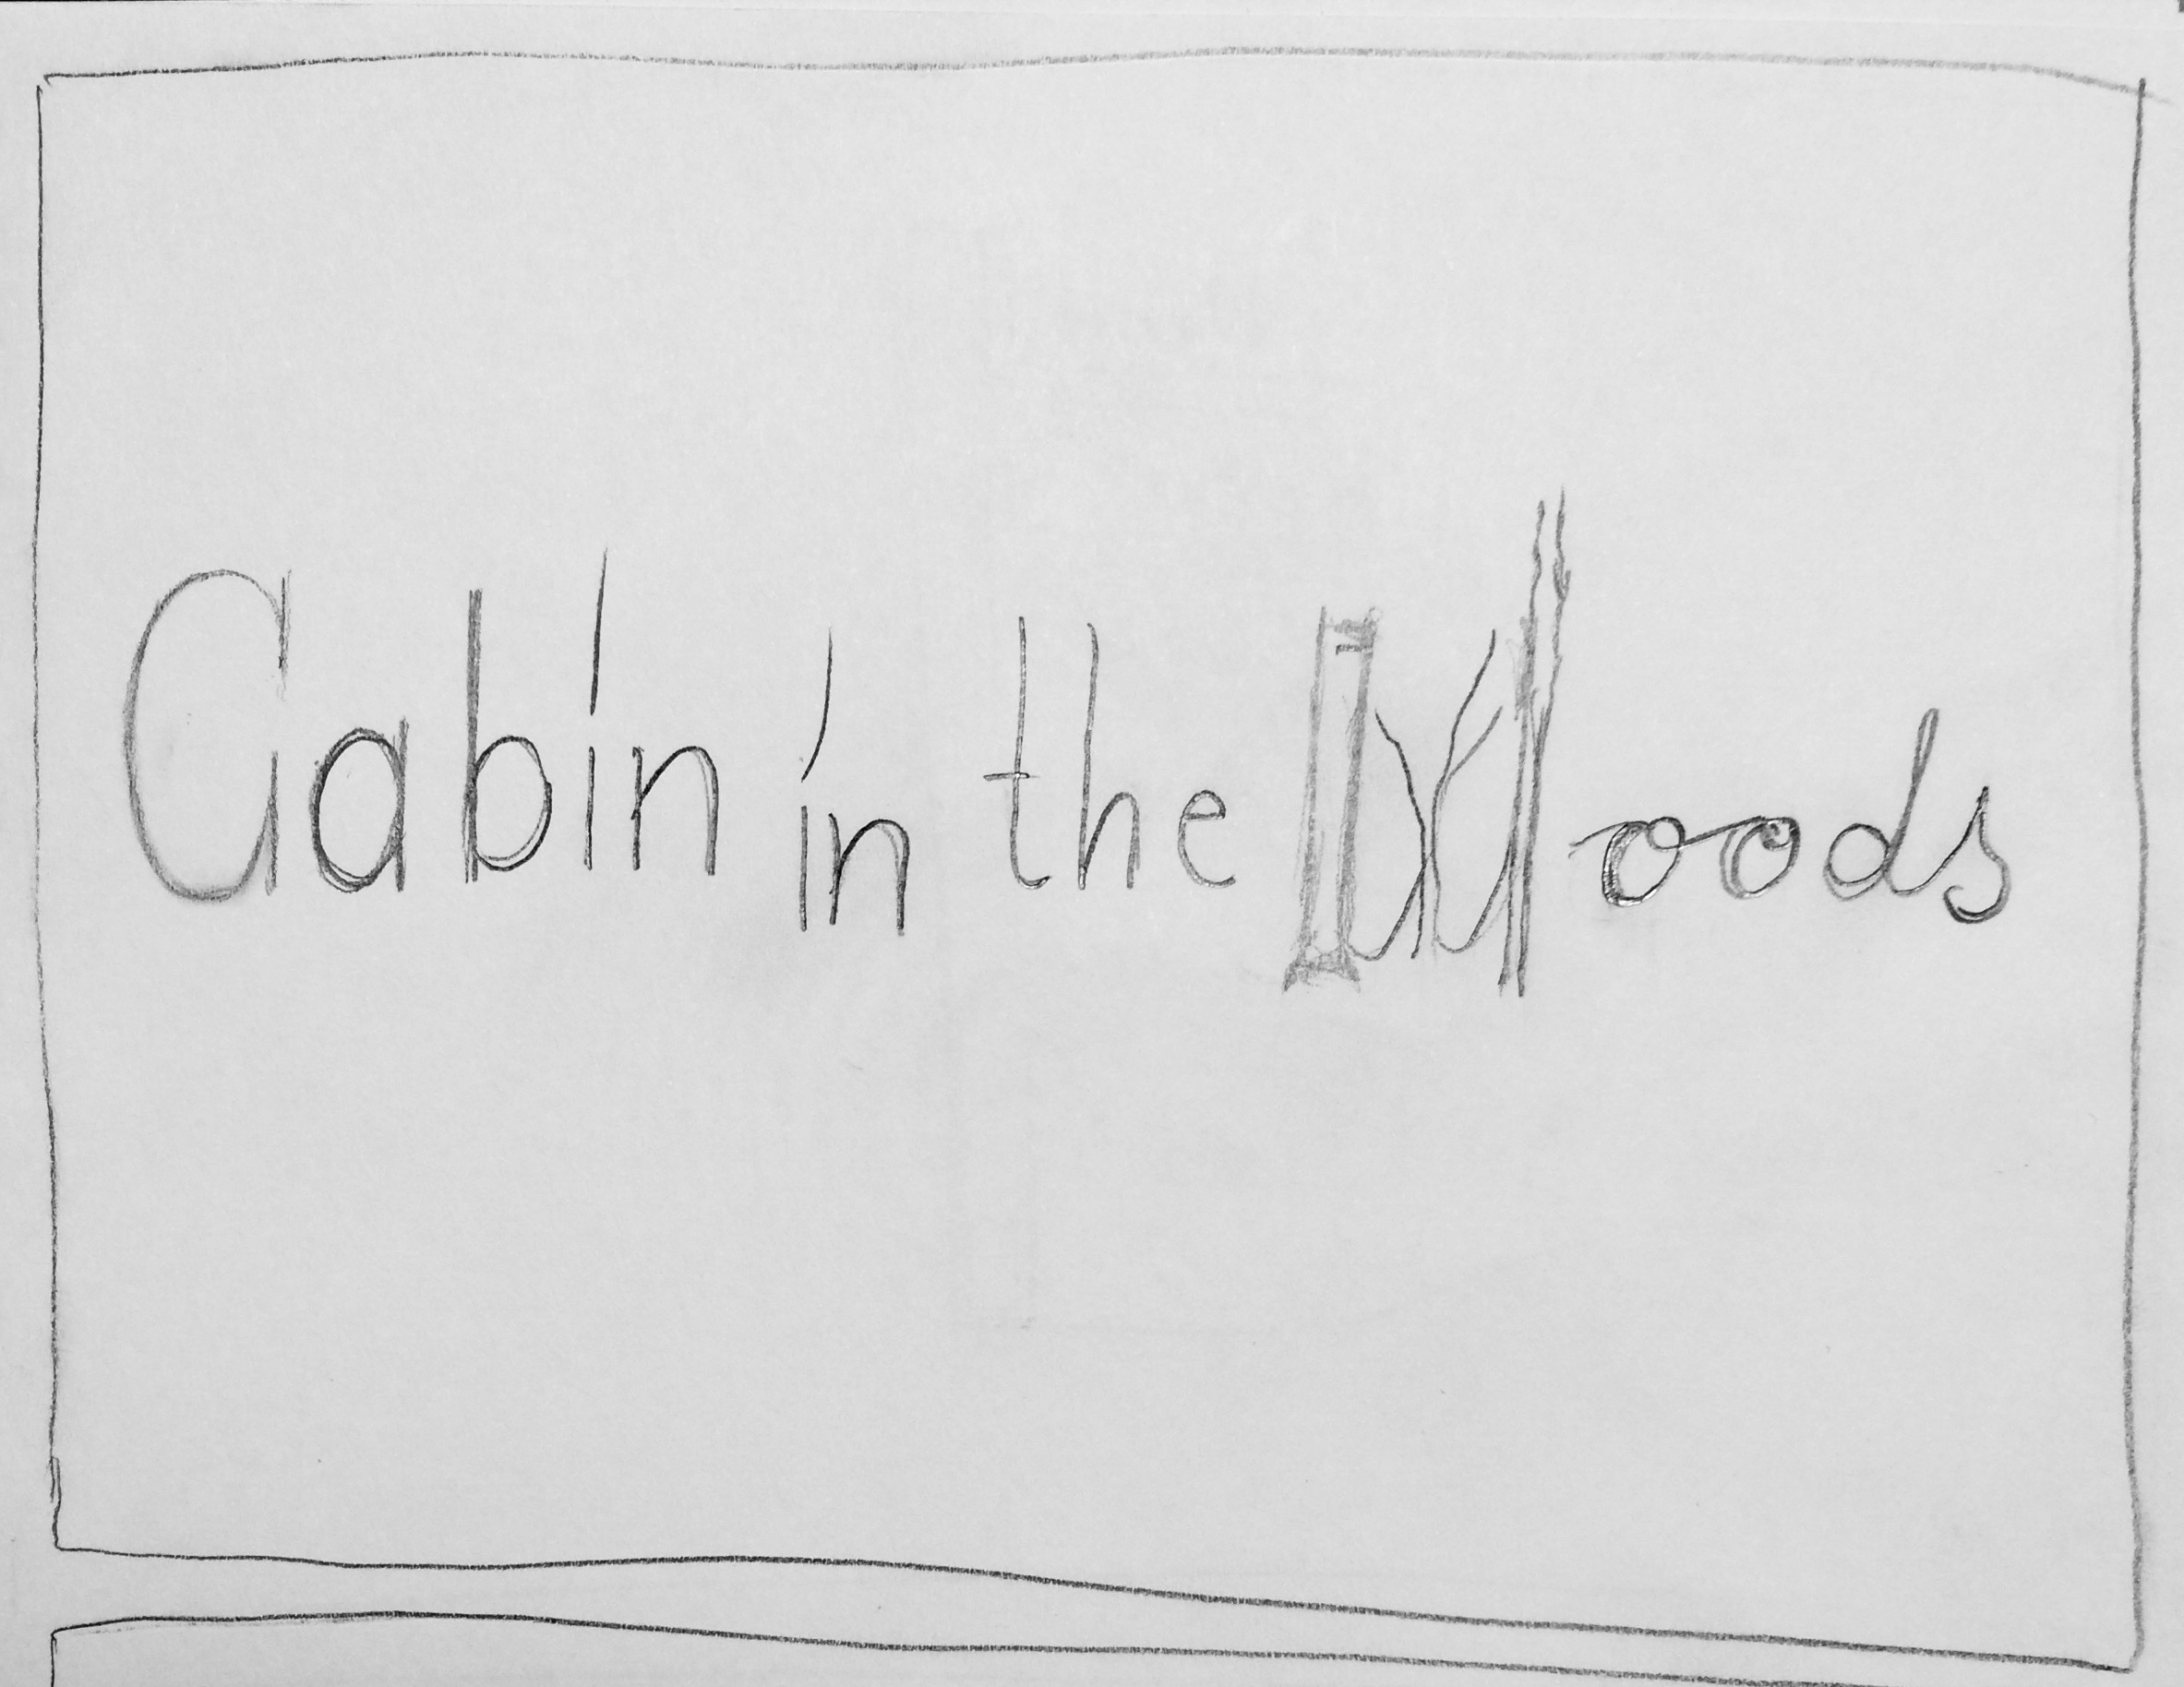 Cabin in the Woods